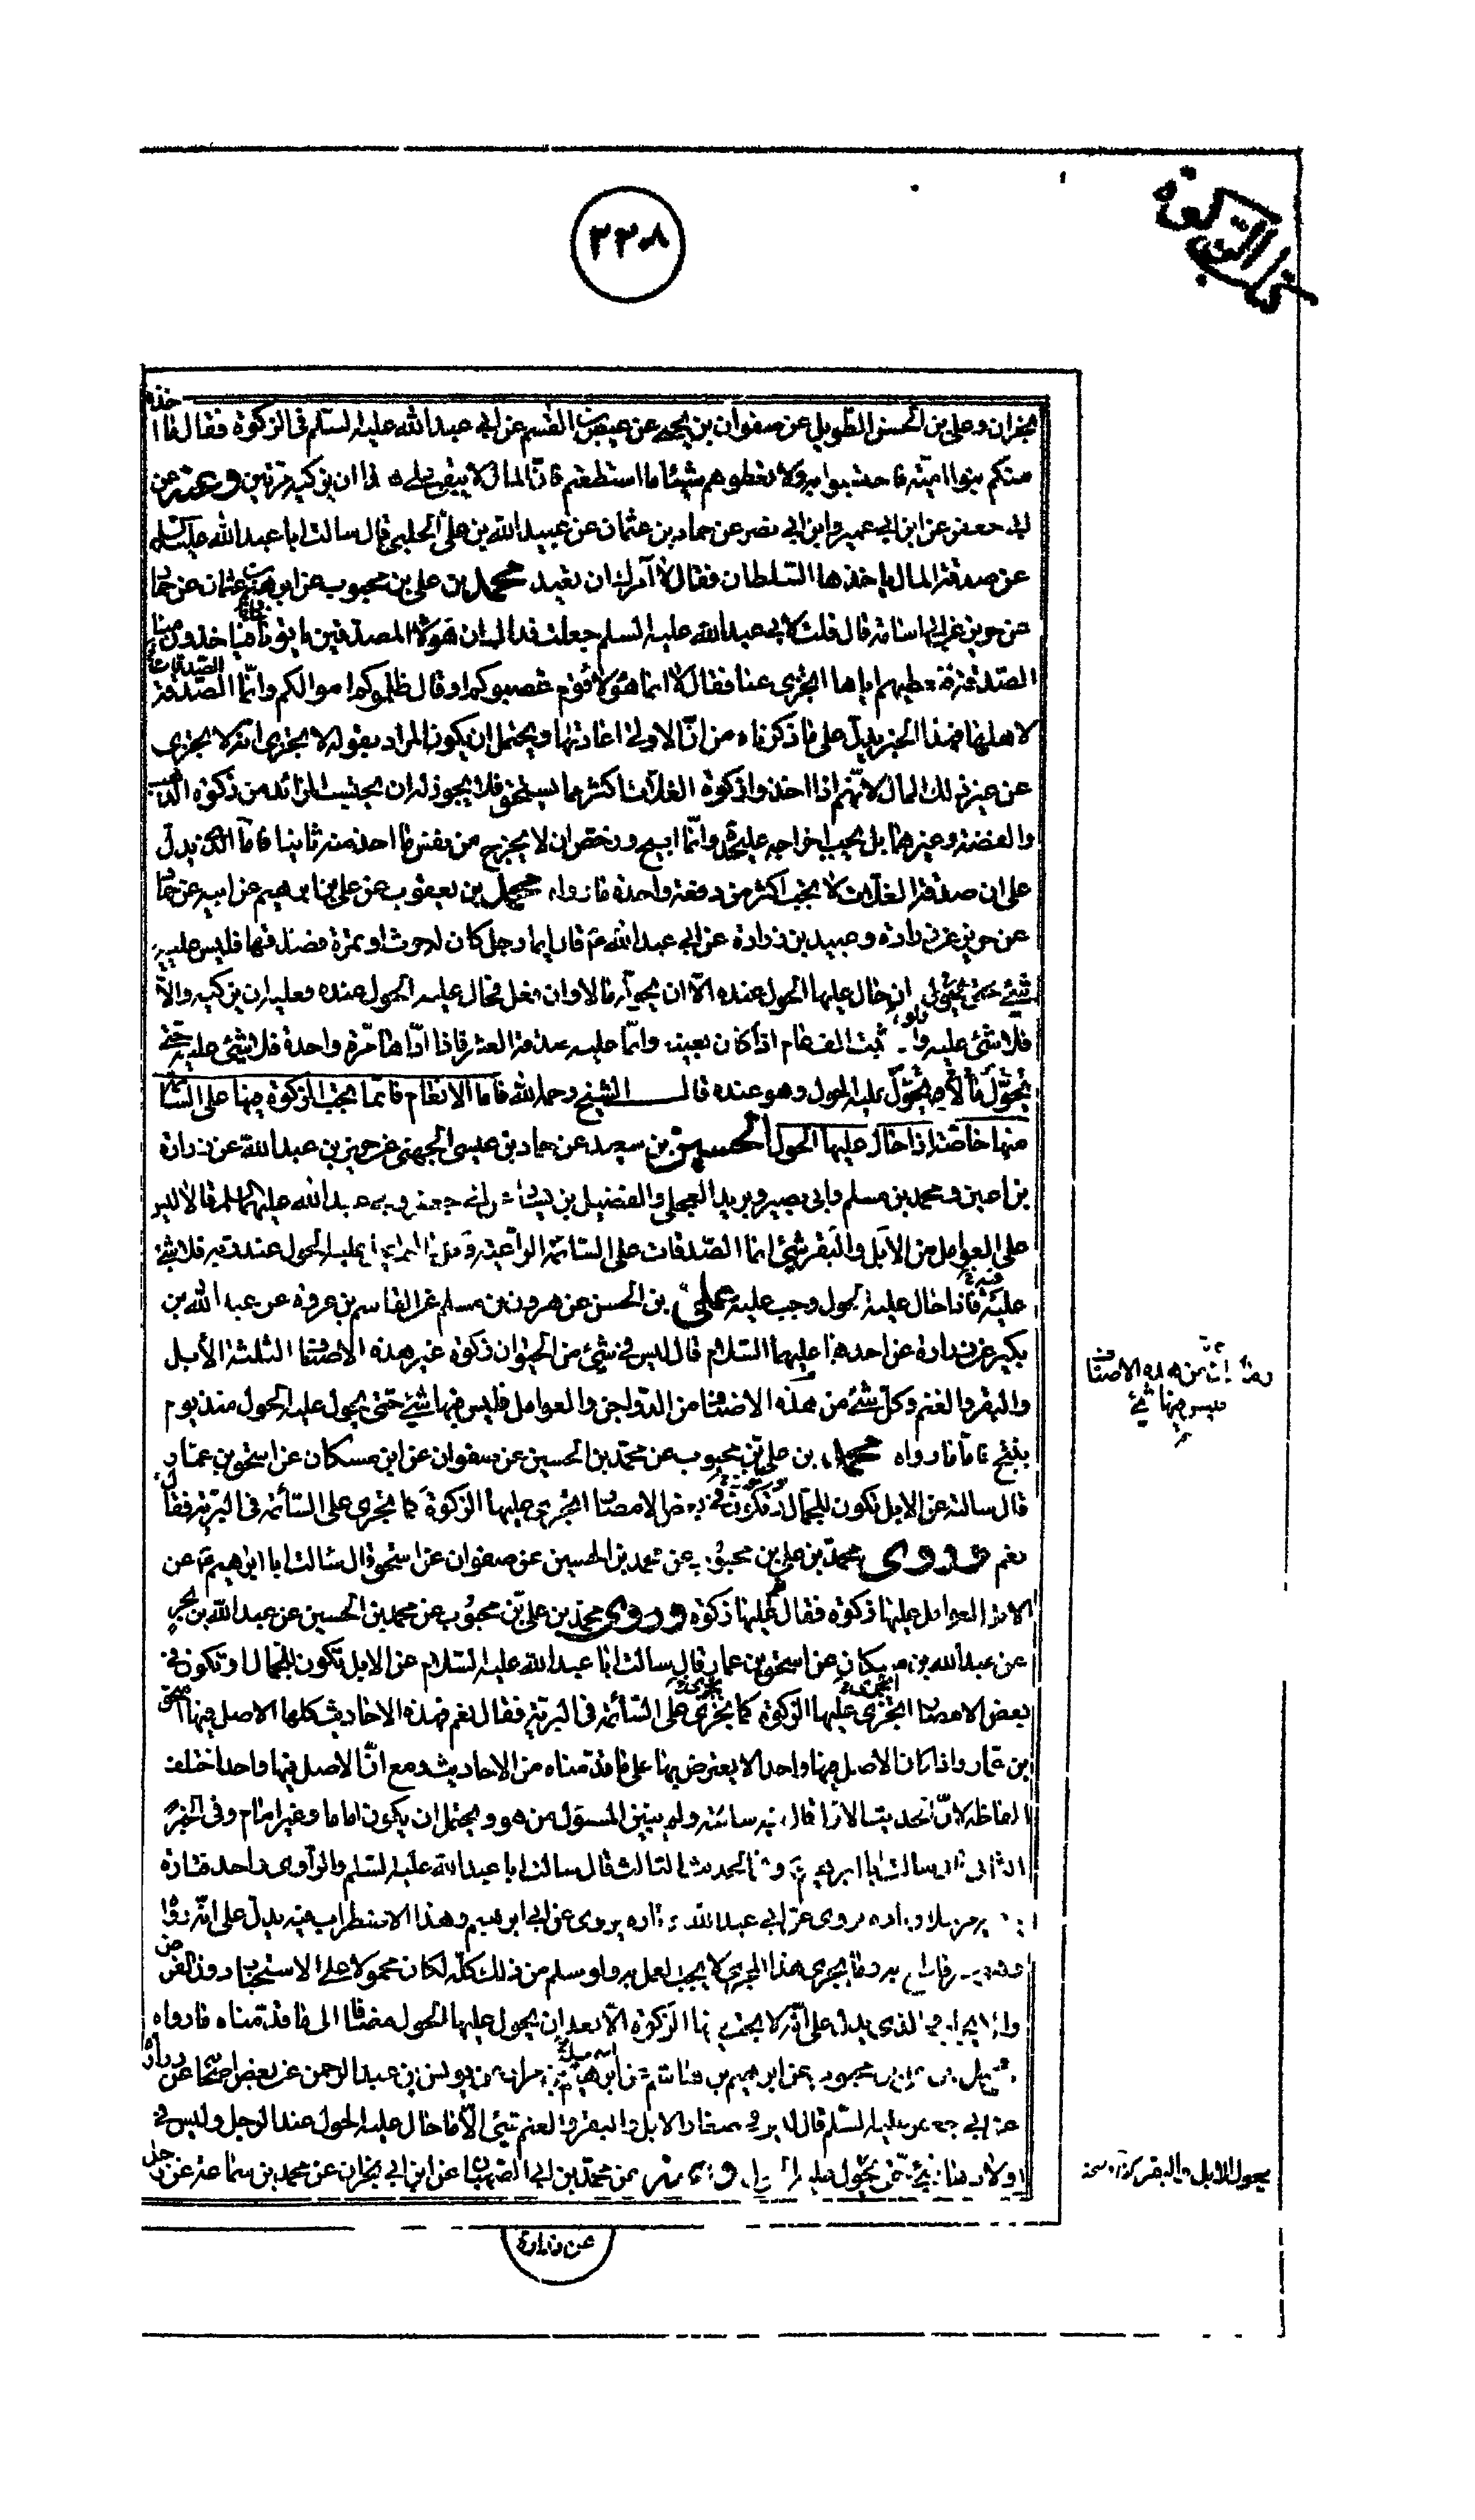 كتاب الزكوة
٣٣٠٨
نجران وعلي بن الحسن الطويل عن صفوان بن يحيى عن عيص بن القسم عن ابي عبد الله عليه السلم في الزكوة فقال ما اخذه
منكم بنوا امية فاحتسبوا به ولا تعطوهم شيئا ما استطعتم فان المال لا يبقى على هذا ان يزكيه مرتين وعنه عن
ابي جعفر عن ابن ابي عمير وابن ابي نصر عن حماد بن عثمان عن عبيد الله بن علي الحلبي قال سالت ابا عبد الله عليه السلم
عن صدقة المال ياخذها السلطان فقال لا آمرك ان تعيد محمد بن علي بن محبوب عن ابرهيم بن عثمان عن حماد
عن حريز عن ابي اسامة قال قلت لابي عبد الله عليه السلم جعلت فداك ان هؤلا المصدقين ياتونا فياخذون منا
الصدقة فنعطيهم اياها اتجزي عنا فقال لا انما هؤلا قوم غصبوكم او قال ظلموكم اموالكم وانما الصدقة
لاهلها فهذا الخبر يدل على ما ذكرناه من ان الاولى اعادتها ويحتمل ان يكون المراد بقوله لا يجزي انه لا يجزي
عن غير ذلك المال لانهم اذا اخذوا زكوة الغلات اكثر مما يستحق فلا يجوز له ان يحتسب الزائد من زكوة الذهب
والفضة وغيرهما بل يجب اخراجه على حده وانما ابيح ورخص ان لا يخرج من نفس ما اخذ منه ثانيا فاما الذي يدل
على ان صدقة الغلات لا يجب اكثر من دفعة واحدة ما رواه محمد بن يعقوب عن علي بن ابرهيم عن ابيه عن حماد
عن حريز عن زرارة وعبيد بن زرارة عن ابي عبد الله ع قال ايما رجل كان له حرث او ثمرة فصدقها فليس عليه
شيئ حتى يحول ان حال عليها الحول عنده الا ان يحوله مالا وان فعل فحال عليه الحول عنده فعليه ان يزكيه والا
فلا شئ عليه ولو ثبت الف عام اذا كان بعينه وانما عليه صدقة العشر فاذا اداها مرة واحدة فلا شئ عليه حتى
يحوله مالا ويحول عليه الحول وهو عنده قال الشيخ رحمه الله فاما الانعام فانما يجب الزكوة منها على السائمة
منها خاصة اذا حال عليها الحول الحسين بن سعيد عن حماد بن عيسى الجهني عن حريز بن عبد الله عن زرارة
بن اعين ومحمد بن مسلم وابي بصير وبريد العجلي والفضيل بن يسار عن ابي جعفر وابي عبد الله عليهما السلم قالا ليس
على العوامل من الابل والبقر شيئ انما الصدقات على السائمة الراعية وكل ما لم يحل عليه الحول عند ربه فلا شئ
عليه فيه فاذا حال عليه الحول وجب عليه علي بن الحسن عن هرون بن مسلم عن القاسم بن عروة عن عبد الله بن
بكير عن زرارة عن احدهما عليهما السلام قال ليس في شيئ من الحيوان زكوة غير هذه الاصناف الثلثة الابل
والبقر والغنم وكل شئ من هذه الاصناف من الدواجن والعوامل فليس فيها شئ حتى يحول عليه الحول منذ يوم
ينتج فاما ما رواه محمد بن علي بن محبوب عن محمد بن الحسين عن صفوان عن ابن مسكان عن اسحق بن عمار
قال سالته عن الابل تكون للجمال او تكون في بعض الامصار اتجري عليها الزكوة كما تجري على السائمة في البرية فقال
نعم وروى محمد بن علي بن محبوب عن محمد بن الحسين عن صفوان عن اسحق قال سالت ابا ابراهيم ع عن
الابل العوامل عليها زكوة فقال نعم عليها زكوة وروى محمد بن علي بن محبوب عن محمد بن الحسين عن عبد الله بن بحر
عن عبد الله بن مسكان عن اسحق بن عمار قال سالت ابا عبد الله عليه السلام عن الابل تكون للجمال او تكون في
بعض الامصار اتجري عليها الزكوة كما تجري على السائمة في البرية فقال نعم فهذه الاحاديث كلها الاصل فيها اسحق
بن عمار واذا كان الاصل فيها واحدا لا يعترض بها على ما قدمناه من الاحاديث ومع ان الاصل فيها واحد اختلف
الفاظه لان الحديث الاول قال فيه سالته ولم يبين المسؤل من هو ويحتمل ان يكون اماما وغير امام وفي الخبر
الثاني قال سالت ابا ابراهيم ع وفي الحديث الثالث قال سالت ابا عبد الله عليه السلم والراوي واحد فتارة
يرويه مرسلا وتارة يروى عن ابي عبد الله وتارة يروى عن ابي ابرهيم وهذا الاضطراب فيه يدل على انه رواه
وما يجري هذا المجرى لا يجب العمل به ولو سلم من ذلك كله لكان محمولا على الاستحباب دون الفرض
والايجاب والذي يدل على انه لا يجب فيها الزكوة الا بعد ان يحول عليها الحول مضافا الى ما قدمناه ما رواه
محمد بن علي بن محبوب عن ابرهيم بن هاشم عن اسمعيل بن مرار عن يونس بن عبد الرحمن عن بعض اصحابنا عن زرارة
عن ابي جعفر عليه السلم قال ليس في صغار الابل والبقر والغنم شئ الا ما حال عليه الحول عند الرجل وليس في
اولادها شئ حتى يحول عليه الحول وعنه عن محمد بن ابي الصهبان عن ابن ابي نجران عن محمد بن سماعة عن رجل
من هذه الاصناف
فليس فيها شئ
يحول الابل والبقر كذا نسخه
عن زرارة